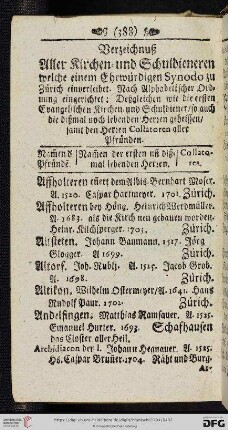 (388)
Verzeichnuß
Aller Kirchen- und Schuldieneren
welche einem Ehrwürdigen Synodo zu
Zürich einverleibet. Nach Alphabetischer Ord-
nung eingerichtet: Deßgleichen wie die ersten
Evangelischen Kirchen- und Schuldiener/so auch
die dißmal noch lebenden Herren geheissen/
samt den Herren Collatoren aller
Pfründen.
Namen d Namen der ersten uñ diß- Collato-
Pfründe. mal lebenden Herren. res.
Affholteren enert dem Albis. Bernhart Moser.
A. 1520. Caspar Hartmeyer. 1701. Zürich.
Affholteren bey Höng. Heinrich Werdmüller.
A. 1683. als die Kirch neu gebauen worden.
Heinr. Hilchsperger. 1703. Zürich.
Altstetten. Johann Baumann. 1517. Jörg
Glogger. A 1699. Zürich.
Altorf. Joh. Rubli. A. 1525. Jacob Grob.
A. 1698. Zürich.
Altikon. Wilhelm Ostermeyer/A. 1641. Hans
Rudolf Paur. 1702. Zürich.
Andelfingen. Matthias Ramsauer. A. 1525.
Emanuel Hurter. 1693. Schafhausen
das Closter aller Heil.
Archidiacon der I. Johann A. 1525.
Hs. Caspar Bruner. 1704. Räht und Burg-